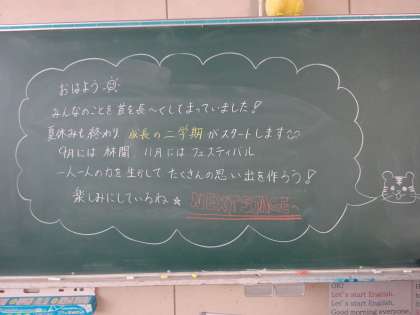 おはよう
みんなのことを首を長〜くしてまっていました！
夏休みも終わり 成長の二学期がスタートします
9月には林間 11月にはフェスティバル
一人一人の力を生かして たくさんの思い出を作ろう！
楽しみにしているね★ NEXT STAGEへ
OK!
Let's start English.
Let's start English.
Good morning everyone.